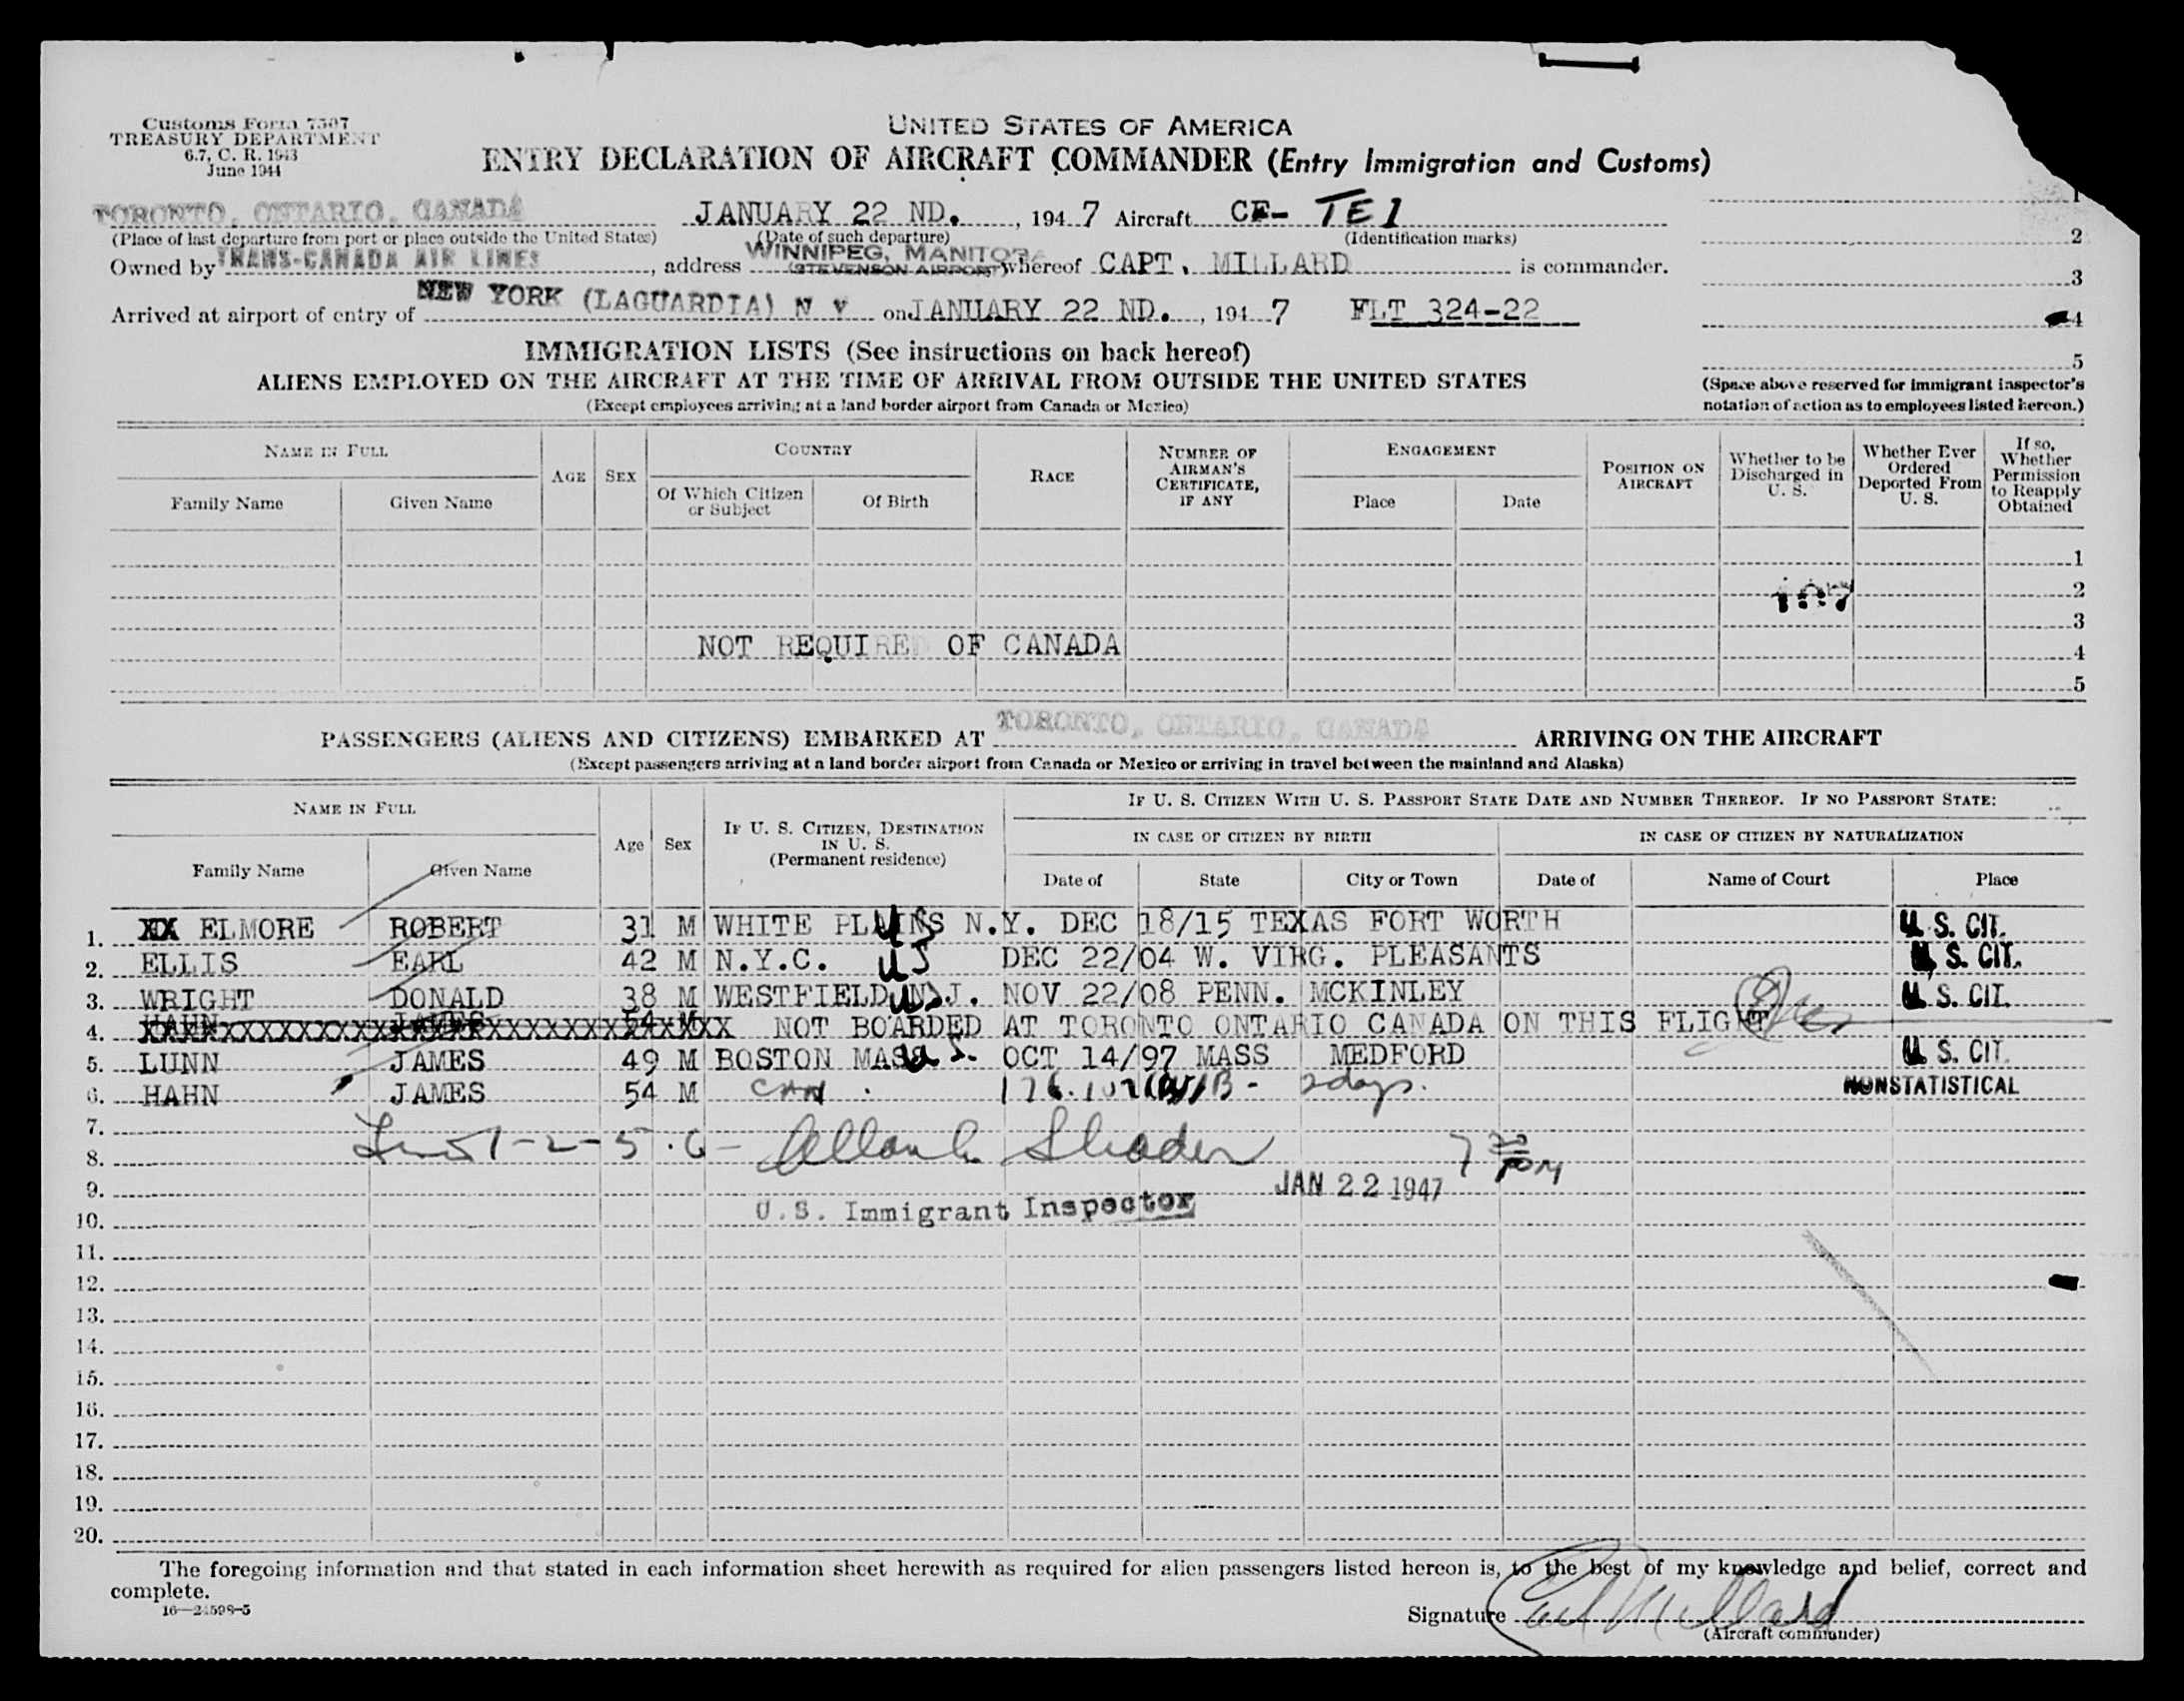 Customs Form 7507
TREASURY DEPARTMENT
6.7, C. R. 1943
June 1944
UNITED STATES OF AMERICA
ENTRY DECLARATION OF AIRCRAFT COMMANDER (Entry Immigration and Customs)
TORONTO, ONTARIO, CANADA JANUARY 22 ND. , 194 7 Aircraft CF- TEI
(Place of last departure from port or place outside the United States) (Date of such departure) (Identification marks)
Owned by TRANS-CANADA AIR LINES , address WINNIPEG, MANITOBA (STEVENSON AIRPORT) whereof CAPT. MILLARD is commander.
Arrived at airport of entry of NEW YORK (LAGUARDIA) N Y on JANUARY 22 ND. , 194 7 FLT 324-22
1
2
3
4
5
(Space above reserved for immigrant inspector's
notation of action as to employees listed hereon.)
IMMIGRATION LISTS (See instructions on back hereof)
ALIENS EMPLOYED ON THE AIRCRAFT AT THE TIME OF ARRIVAL FROM OUTSIDE THE UNITED STATES
(Except employees arriving at a land border airport from Canada or Mexico)
NAME IN FULL
Family Name Given Name
AGE SEX
COUNTRY
Of Which Citizen or Subject Of Birth
RACE
NUMBER OF AIRMAN'S CERTIFICATE, IF ANY
ENGAGEMENT
Place Date
POSITION ON AIRCRAFT
Whether to be Discharged in U. S.
Whether Ever Ordered Deported From U. S.
If so, Whether Permission to Reapply Obtained
1
2
3
NOT REQUIRED OF CANADA 4
5
PASSENGERS (ALIENS AND CITIZENS) EMBARKED AT TORONTO, ONTARIO, CANADA ARRIVING ON THE AIRCRAFT
(Except passengers arriving at a land border airport from Canada or Mexico or arriving in travel between the mainland and Alaska)
NAME IN FULL
Family Name Given Name
Age Sex
IF U. S. CITIZEN, DESTINATION IN U. S. (Permanent residence)
IF U. S. CITIZEN WITH U. S. PASSPORT STATE DATE AND NUMBER THEREOF. IF NO PASSPORT STATE:
IN CASE OF CITIZEN BY BIRTH IN CASE OF CITIZEN BY NATURALIZATION
Date of State City or Town Date of Name of Court Place
1. XX ELMORE ROBERT 31 M WHITE PLAINS N.Y. US DEC 18/15 TEXAS FORT WORTH U.S. CIT.
2. ELLIS EARL 42 M N.Y.C. US DEC 22/04 W. VIRG. PLEASANTS U.S. CIT.
3. WRIGHT DONALD 38 M WESTFIELD N.J. US NOV 22/08 PENN. MCKINLEY U.S. CIT.
4. HAHN JAMES 54 M NOT BOARDED AT TORONTO ONTARIO CANADA ON THIS FLIGHT
5. LUNN JAMES 49 M BOSTON MASS US. OCT 14/97 MASS MEDFORD U.S. CIT.
6. HAHN JAMES 54 M CAN 2 days. NONSTATISTICAL
7.
8. 1-2-5.6- 7 30 PM
9. JAN 22 1947
10. U.S. Immigrant Inspector
11.
12.
13.
14.
15.
16.
17.
18.
19.
20.
The foregoing information and that stated in each information sheet herewith as required for alien passengers listed hereon is, to the best of my knowledge and belief, correct and
complete.
16—24598-5
Signature Earl Millard
(Aircraft commander)